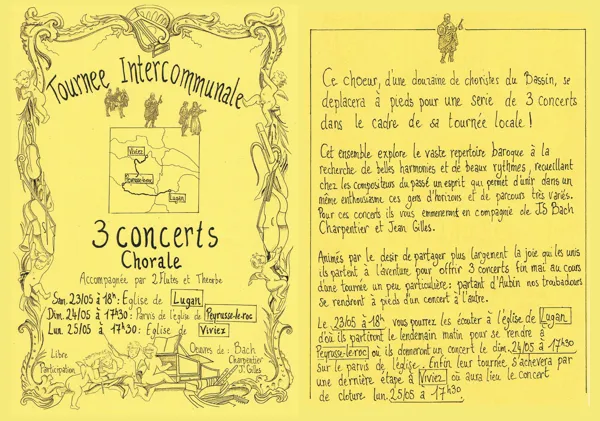 Tournee Intercommunale
Viviez
Peyrusse-le-roc
Lugan
3 concerts
Chorale
Accompagnée par 2 Flutes et Theorbe
Sam. 23/05 à 18h : Eglise de Lugan
Dim. 24/05 à 17h30 : Parvis de l'église de Peyrusse-le-roc
Lun. 25/05 à 17h30 : Eglise de Viviez
Libre
Participation
Oeuvres de : Bach
Charpentier
J. Gilles
Ce choeur, d'une douzaine de choristes du Bassin, se
deplacera à pieds pour une serie de 3 concerts
dans le cadre de sa tournée locale !
Cet ensemble explore le vaste repertoire baroque à la
recherche de belles harmonies et de beaux rythmes, recueillant
chez les compositeurs du passé un esprit qui permet d'unir dans un
même enthousiasme ces gens d'horizons et de parcours très variés.
Pour ces concerts ils vous emmeneront en compagnie de JS Bach
Charpentier et Jean Gilles.
Animés par le desir de partager plus largement la joie qui les unis
ils partent à l'aventure pour offrir 3 concerts fin mai au cours
d'une tournée un peu particulière : partant d'Aubin nos troubadours
se rendront à pieds d'un concert à l'autre.
Le 23/05 à 18h vous pourrez les écouter à l'église de Lugan
d'où ils partiront le lendemain matin pour se rendre à
Peyrusse-le-roc où ils donneront un concert le dim. 24/05 à 17h30
sur le parvis de l'église. Enfin leur tournée s'achevera par
une dernière étape à Viviez où aura lieu le concert
de cloture lun. 25/05 à 17h30